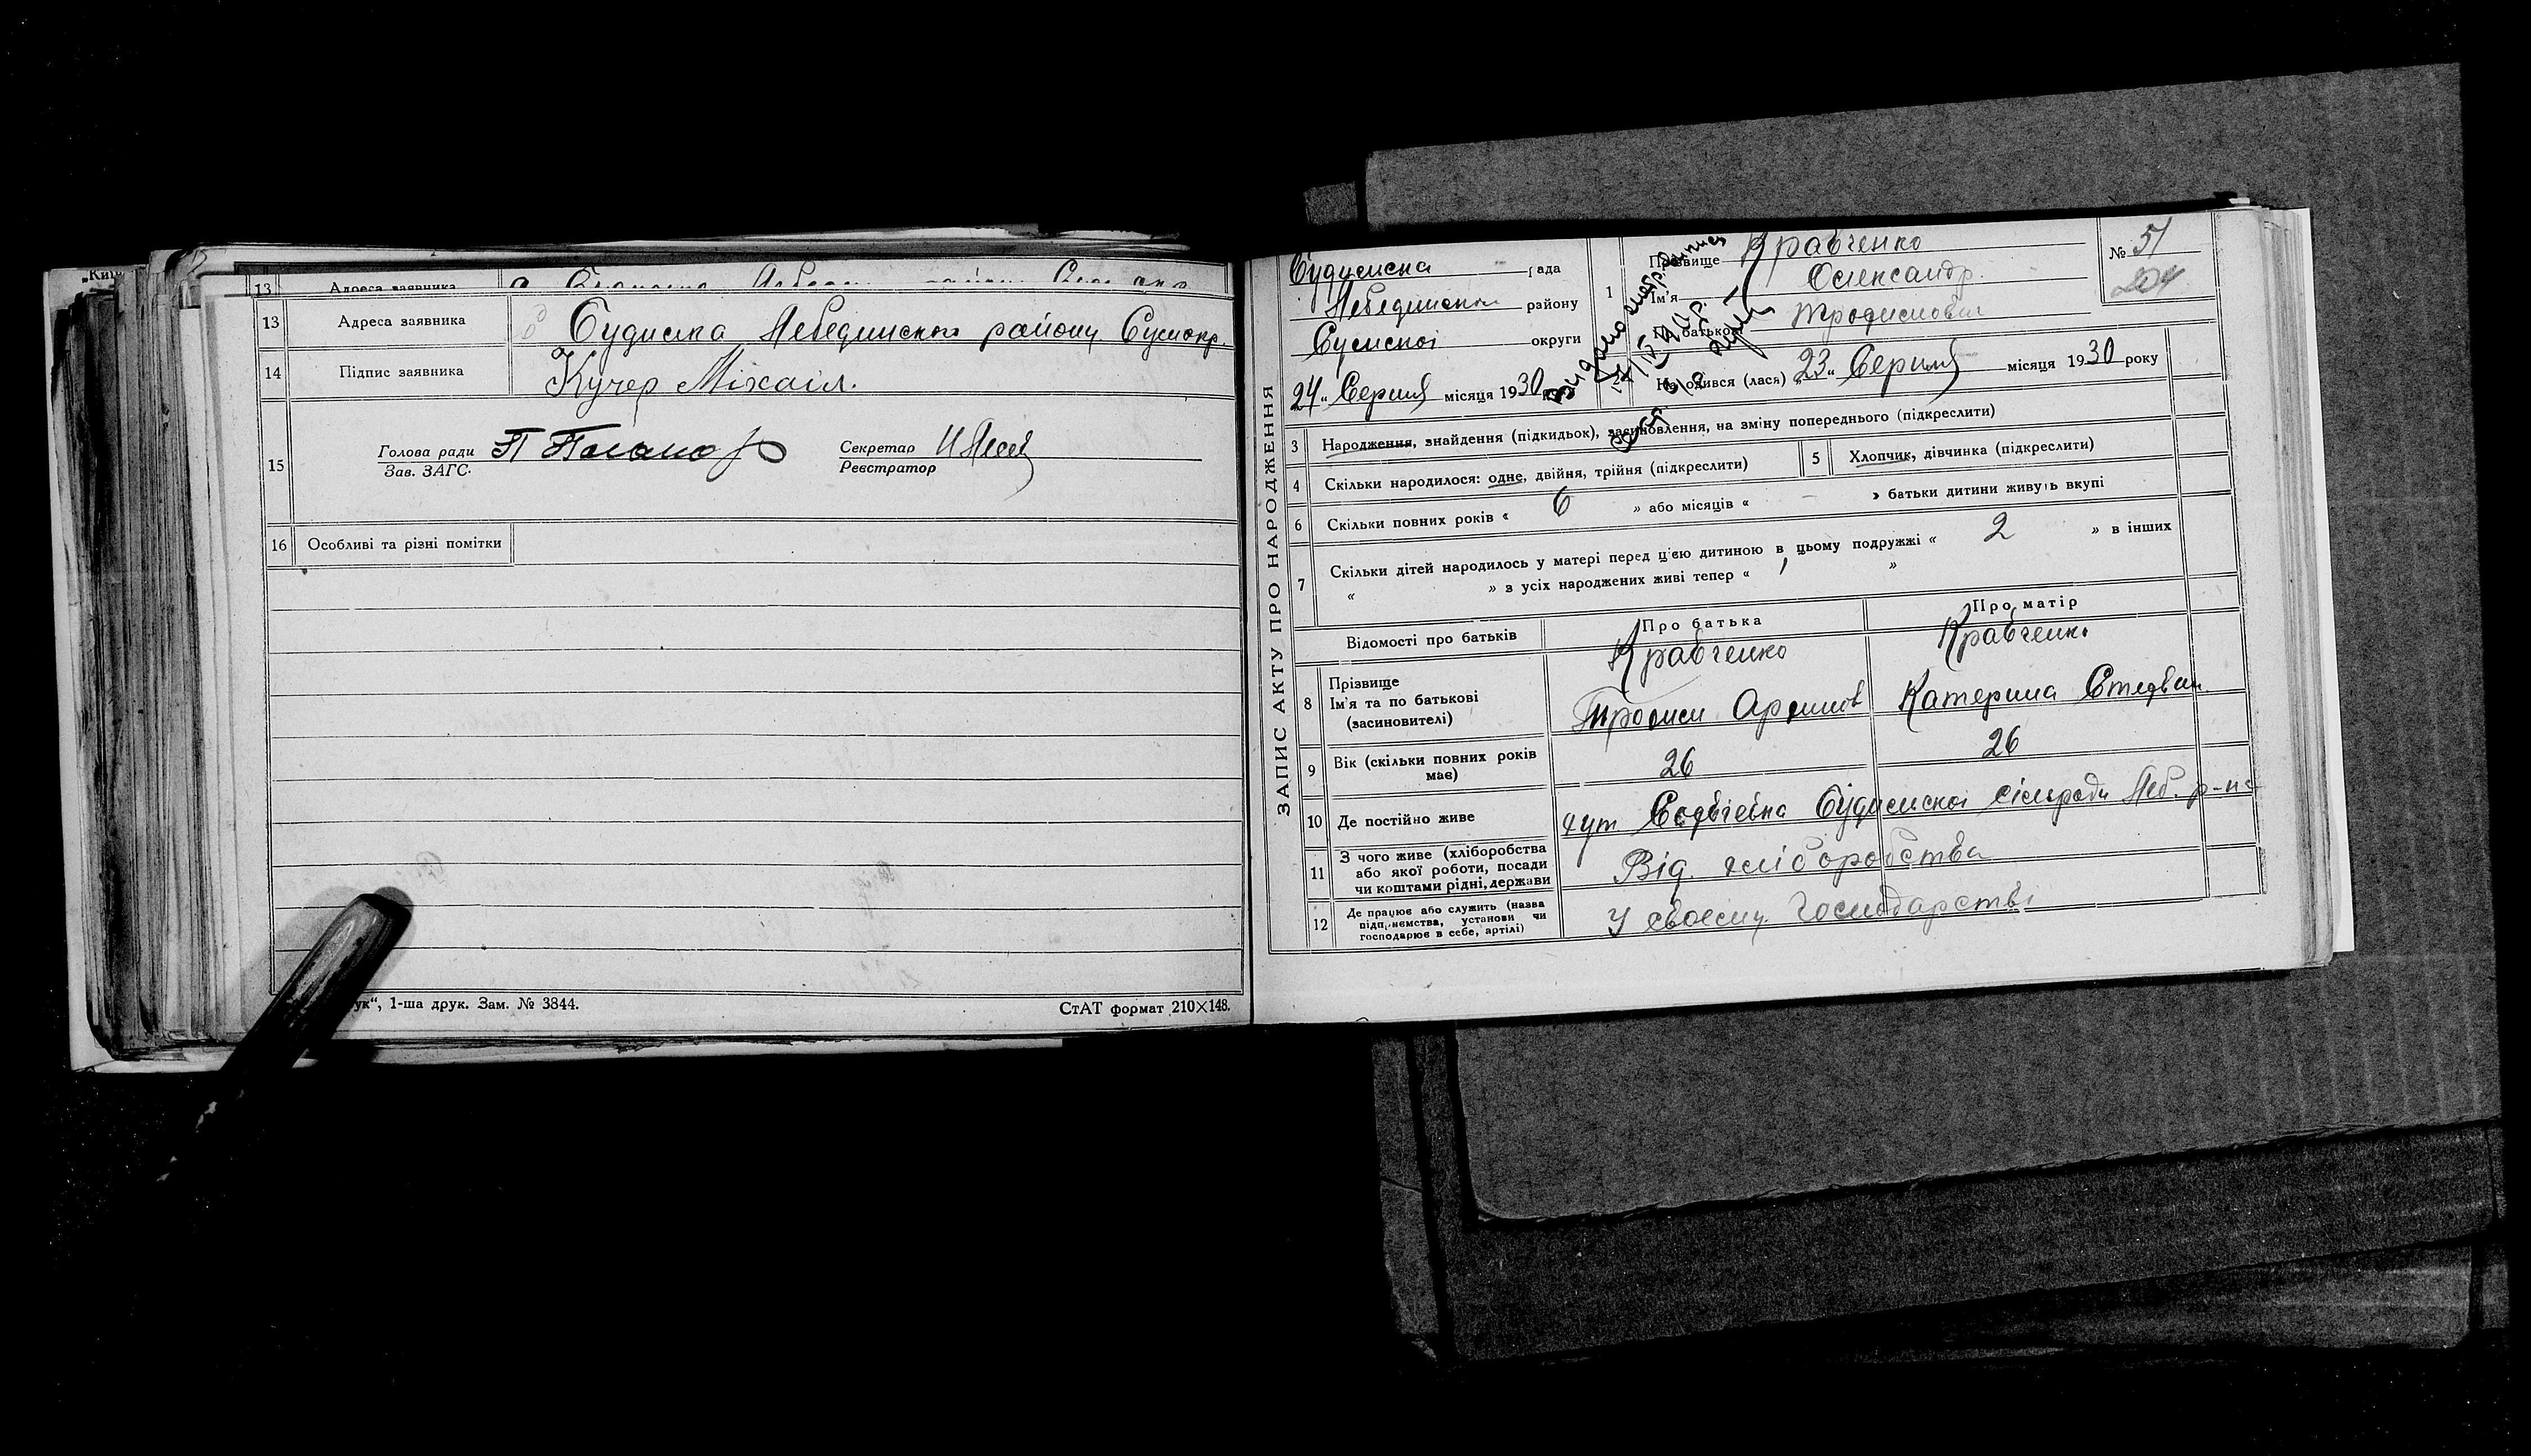 „Київ
13 Адреса заявника
13 Адреса заявника Будилка Лебединского району Сумокр.
14 Підпис заявника Кучер Міхаіл.
15 Голова ради Секретар
Зав. ЗАГС. Реєстратор
16 Особливі та різні помітки
ук“, 1-ша друк. Зам. № 3844. СтАТ формат 210×148.
ЗАПИС АКТУ ПРО НАРОДЖЕННЯ
рада
Лебединского району
Сумскої округи
24 „ Серпня місяця 1930
№ 51
204
1 Прізвище Кравченко
Ім'я Олександр
батькові
Народився (лася) „23„ Серпня місяця 1930 року
3 Народження, знайдення (підкидьок), засиновлення, на зміну попереднього (підкреслити)
4 Скільки народилося: одне, двійня, трійня (підкреслити) 5 Хлопчик, дівчинка (підкреслити)
6 Скільки повних років « 6 » або місяців « – » батьки дитини живуть вкупі
7 Скільки дітей народилось у матері перед ц'єю дитиною в цьому подружжі « 2 » в інших
« » з усіх народжених живі тепер « 1 »
Відомості про батьків Про батька Про матір
8 Прізвище Кравченко Кравченко
Ім'я та по батькові Катерина
(засиновителі)
9 Вік (скільки повних років має) 26 26
10 Де постійно живе сільради Леб. р-на
11 З чого живе (хліборобства або якої роботи, посади чи коштами рідні, держави Від хліборобства
12 Де працює або служить (назва підприємства, установи чи господарює в себе, артілі) У своєму Господарстві